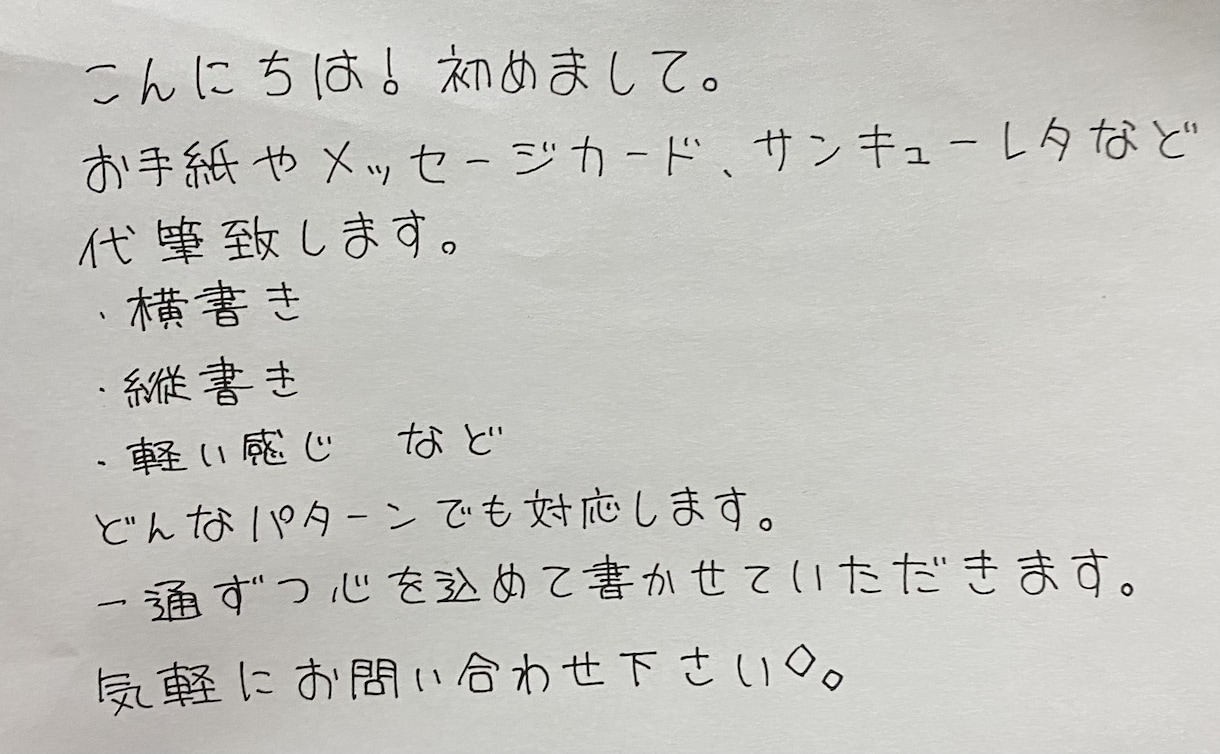 こんにちは! 初めまして。
お手紙やメッセージカード、サンキューレタなど
代筆致します。
・横書き
・縦書き
・軽い感じ など
どんなパターンでも対応します。
一通ずつ心を込めて書かせていただきます。
気軽にお問い合わせ下さい◇。